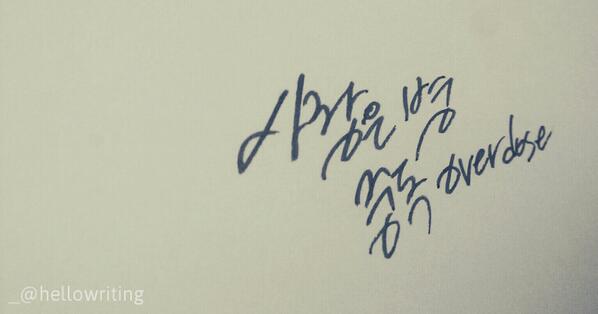 사랑은 병
중독 overdose
_@hellowriting